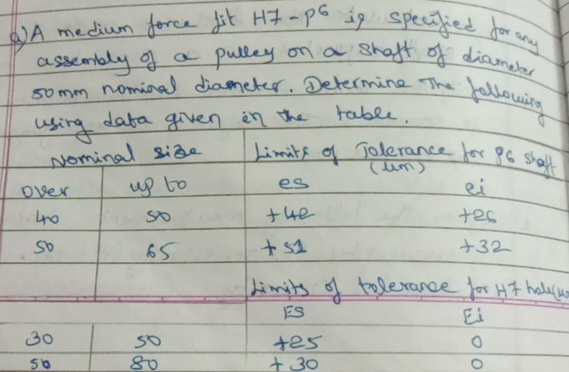 a) A medium force fit H7-p6 is specified for any
assembly of a pulley on a shaft of diameter
50mm nominal diameter. Determine The following
using data given in the table.
Nominal size Limits of Tolerance for p6 shaft
(um)
over up to es ei
40 50 +42 +26
50 65 +51 +32
Limits of tolerance for H7 hole
ES Ei
30 50 +25 0
50 80 +30 0